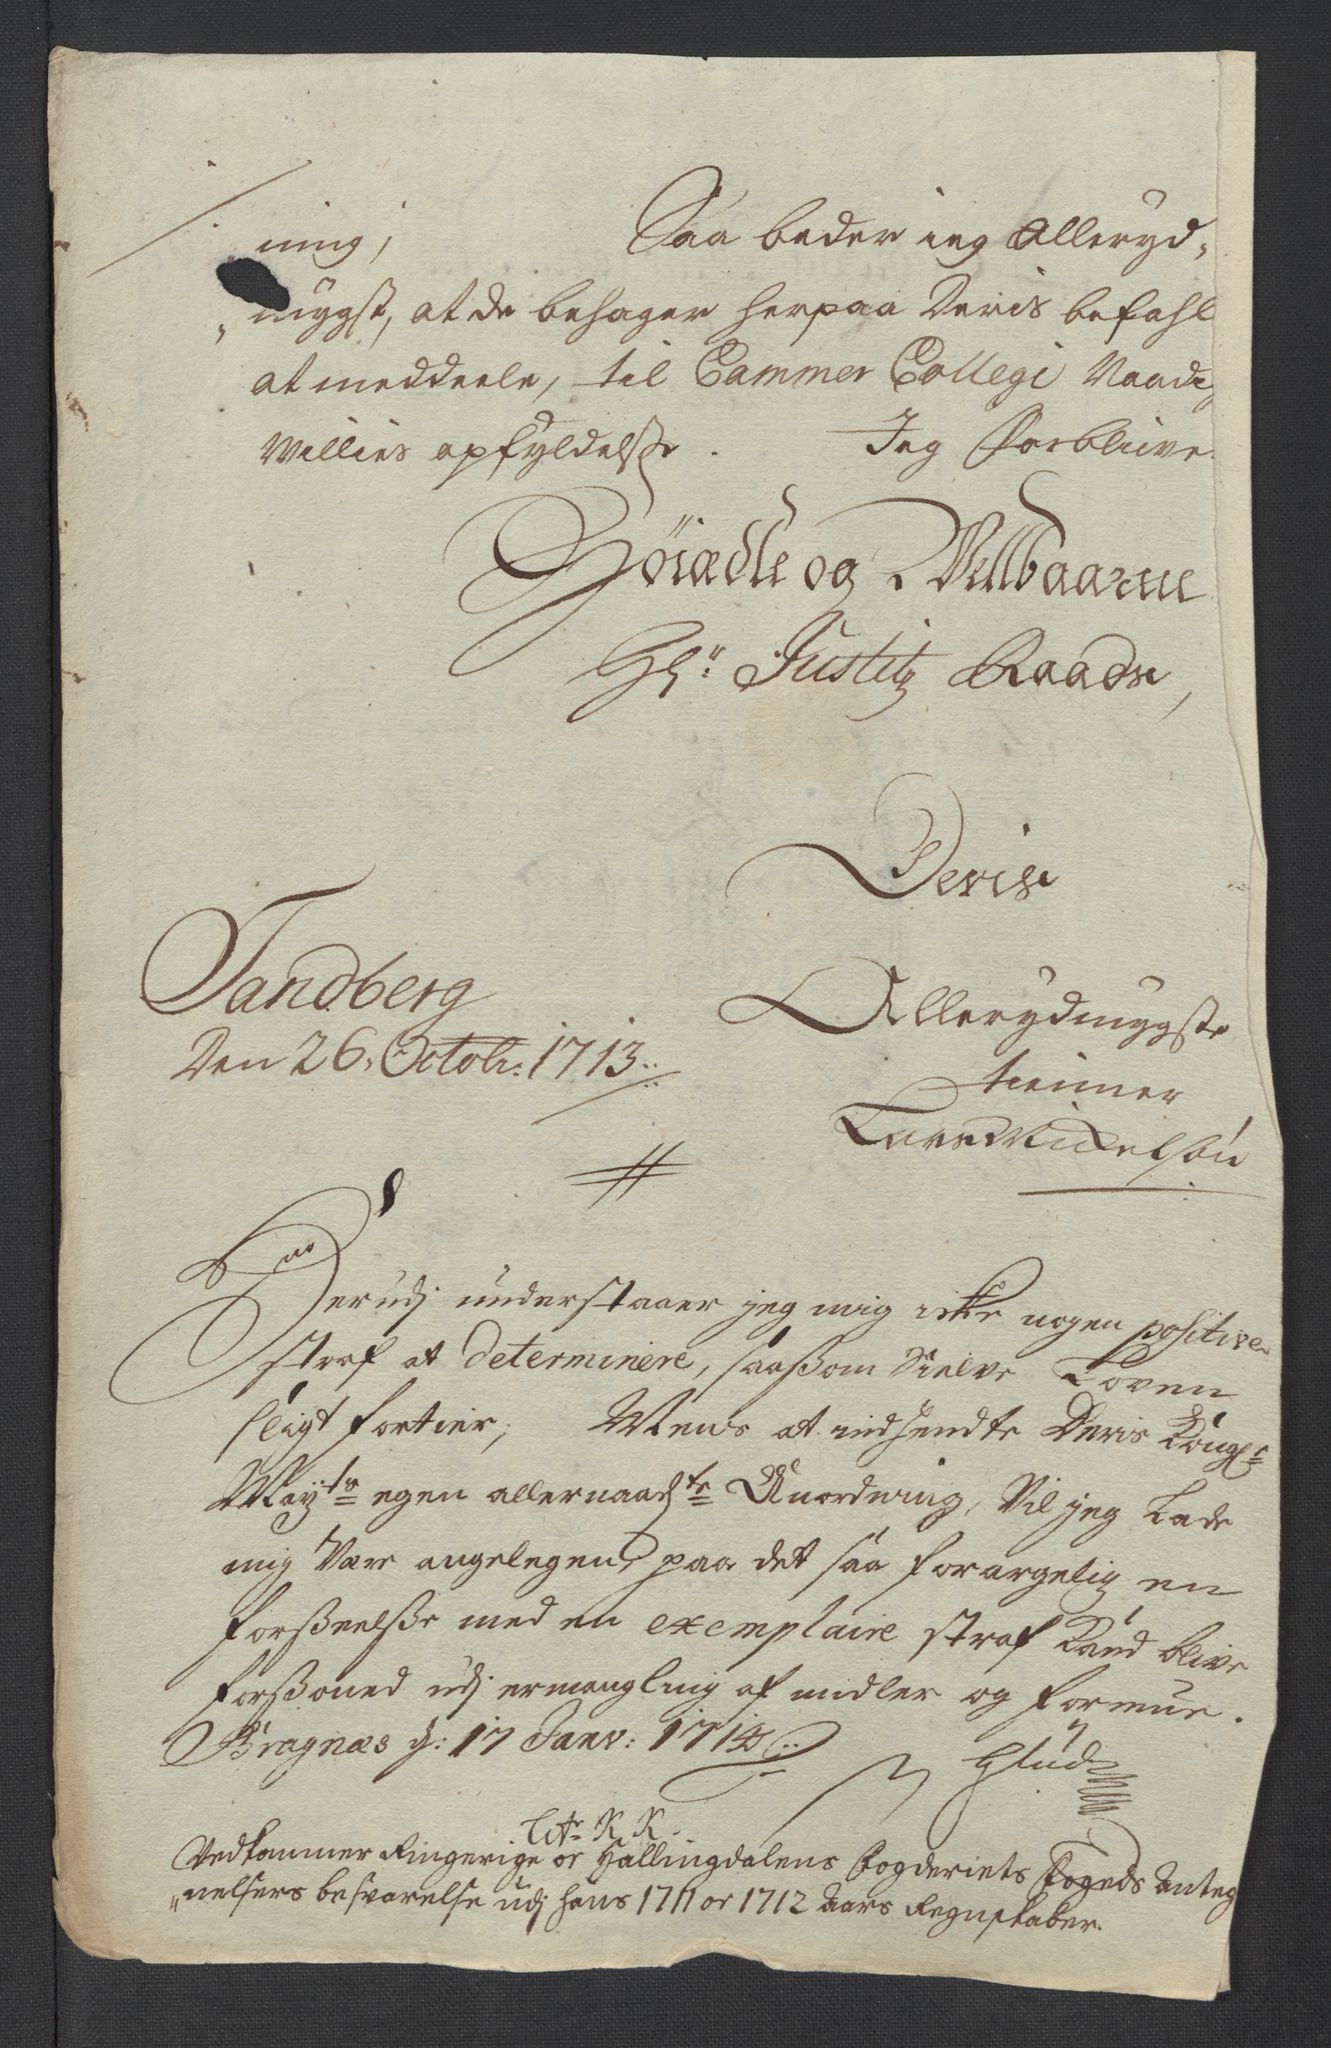 ning; Saa beder ieg Alleryd,
„mygst, at de behager herpaa Deris befahl
at meddeele, til Cammer Collegi Naadi,
Willies opfyldelsse. Jeg forblive
Höiædle og Wellbaarne
Hr: Justitz Raads,
Deris
Tandberg
Allerydmygste
Den 26. Octobr: 1713.
tienner
Lars Mickelsøn
Herudj understaaer jeg mig icke nogen positive
straf at determinere, saasom Sielve Loven
sligt fortier; Mens at indhendte Deris Kongl:
Mayts egen allernaadste Anordning, Vil jeg Lade
mig Være angelegen, paa det saa forargelig en
forsseelsse med en exemplaire straf Kand blive
forssoned udj ermangling af midler og formue.
Bragnæs d: 17 Janv: 1714
Glud
Ltr K K.
Vedkommer Ringerige or Hallingdalens fogderiets fogeds Anteg
„nelsers besvarelse udj hans 1711 or 1712 Aars Regnskaber.